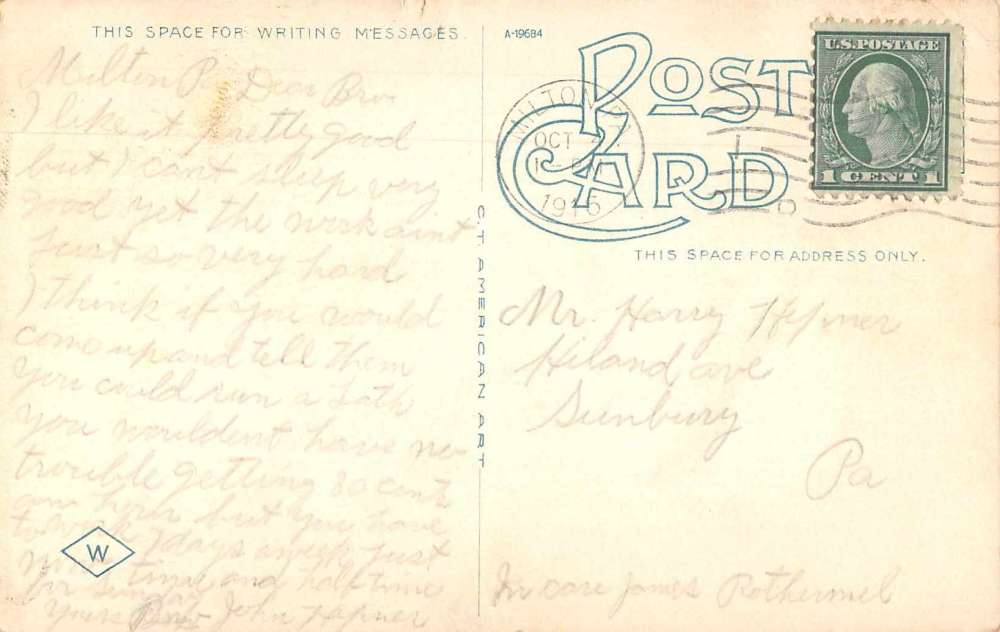 THIS SPACE FOR WRITING MESSAGES.
Milton Pa Dear Bro.
I like it pretty good
but I cant sleep very
good yet the work aint
just so very hard
I think if you would
come up and tell them
you could run a Lath
you wouldent have no
trouble getting 30 cents
hour but you have
to work 7 days a week just
time and half time
for Sunday
Yours Bro John Hepner
W
C.T. AMERICAN ART
A-19684
POST CARD
MILTON, PA.
OCT
1916
U.S. POSTAGE
1 CENT 1
THIS SPACE FOR ADDRESS ONLY.
Mr. Harry Hepner
Hiland ave
Sunbury
Pa
In care James Rothermel